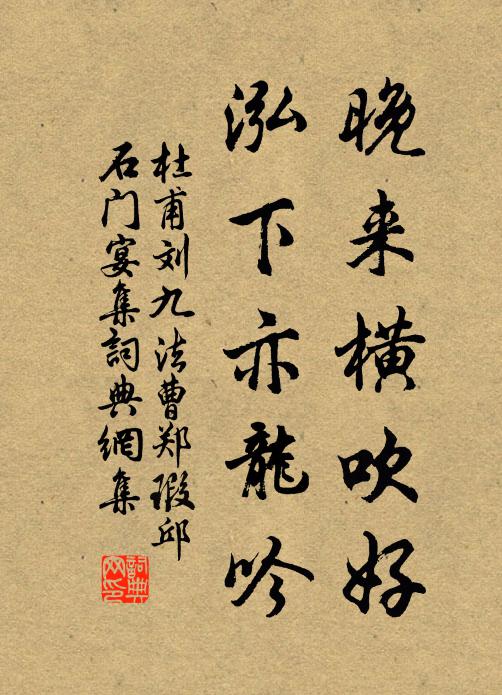 晚来横吹好
泓下亦龍吟
杜甫刘九法曹郑瑕邱
石门宴集詞典網集
詞典
网印